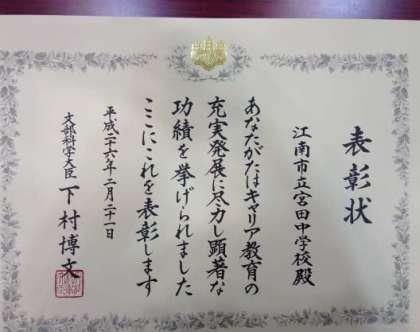 表彰状
江南市立宮田中学校殿
あなたがたはキャリア教育の
充実発展に尽力し顕著な
功績を挙げられました
ここにこれを表彰します
平成二十六年二月二十一日
文部科学大臣 下村博文